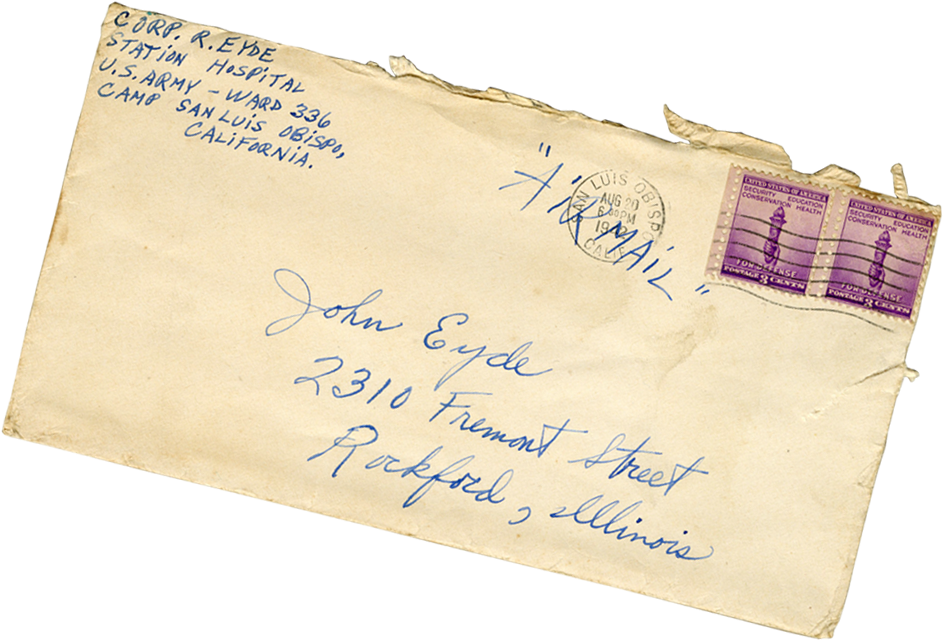 CORP. R. EYDE
STATION HOSPITAL
U.S. ARMY - WARD 336
CAMP SAN LUIS OBISPO,
CALIFORNIA.
"AIR MAIL"
SAN LUIS OBISPO
AUG 20
PM
1942
CALIF.
UNITED STATES OF AMERICA
SECURITY EDUCATION
CONSERVATION HEALTH
FOR DEFENSE
POSTAGE 3 CENTS
UNITED STATES OF AMERICA
SECURITY EDUCATION
CONSERVATION HEALTH
FOR DEFENSE
POSTAGE 3 CENTS
John Eyde
2310 Fremont Street
Rockford, Illinois